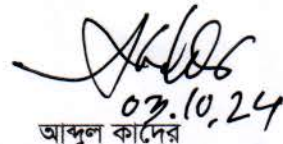 03.10.24
আব্দুল কাদের